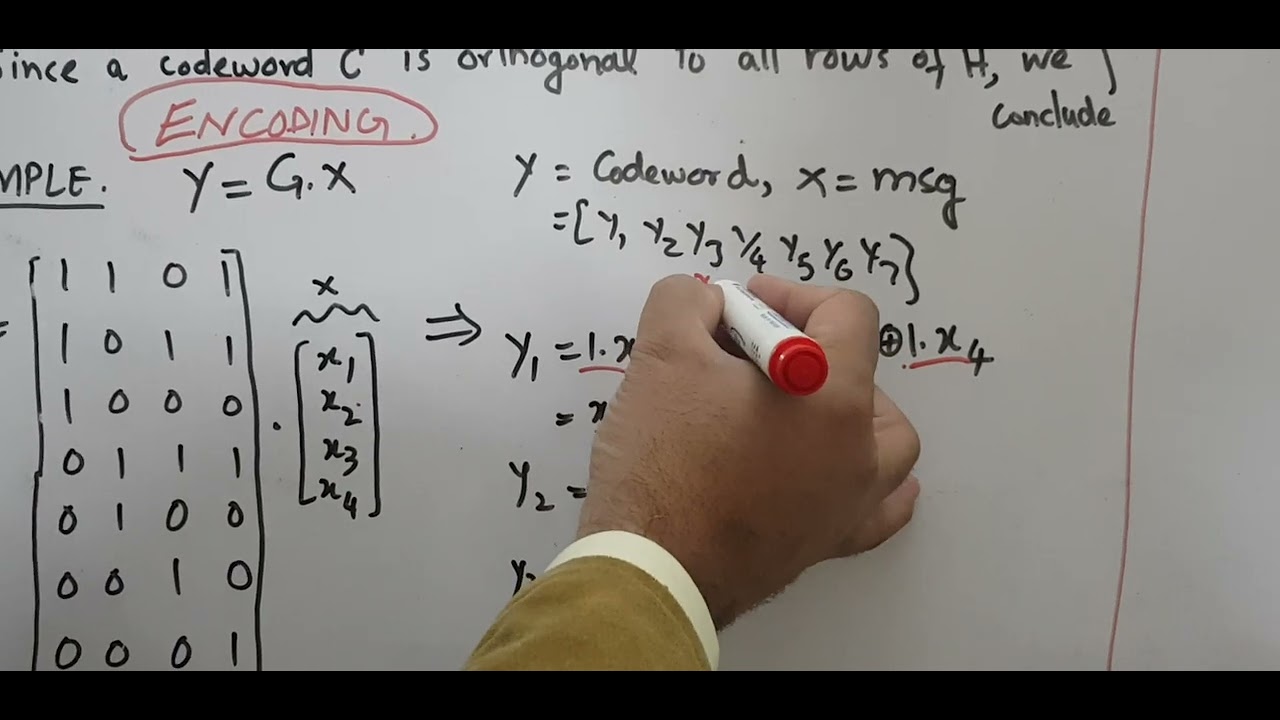 Since a codeword C is orthogonal to all rows of H, we
conclude
ENCODING.
MPLE. Y = G.X
Y = Codeword, x = msg
= [Y1 Y2 Y3 Y4 Y5 Y6 Y7]
x
1 1 0 1
1 0 1 1
1 0 0 0
0 1 1 1
0 1 0 0
0 0 1 0
0 0 0 1
.
x1
x2
x3
x4
⇒
Y1 = 1.x ⊕ 1.x4
= x
Y2 =